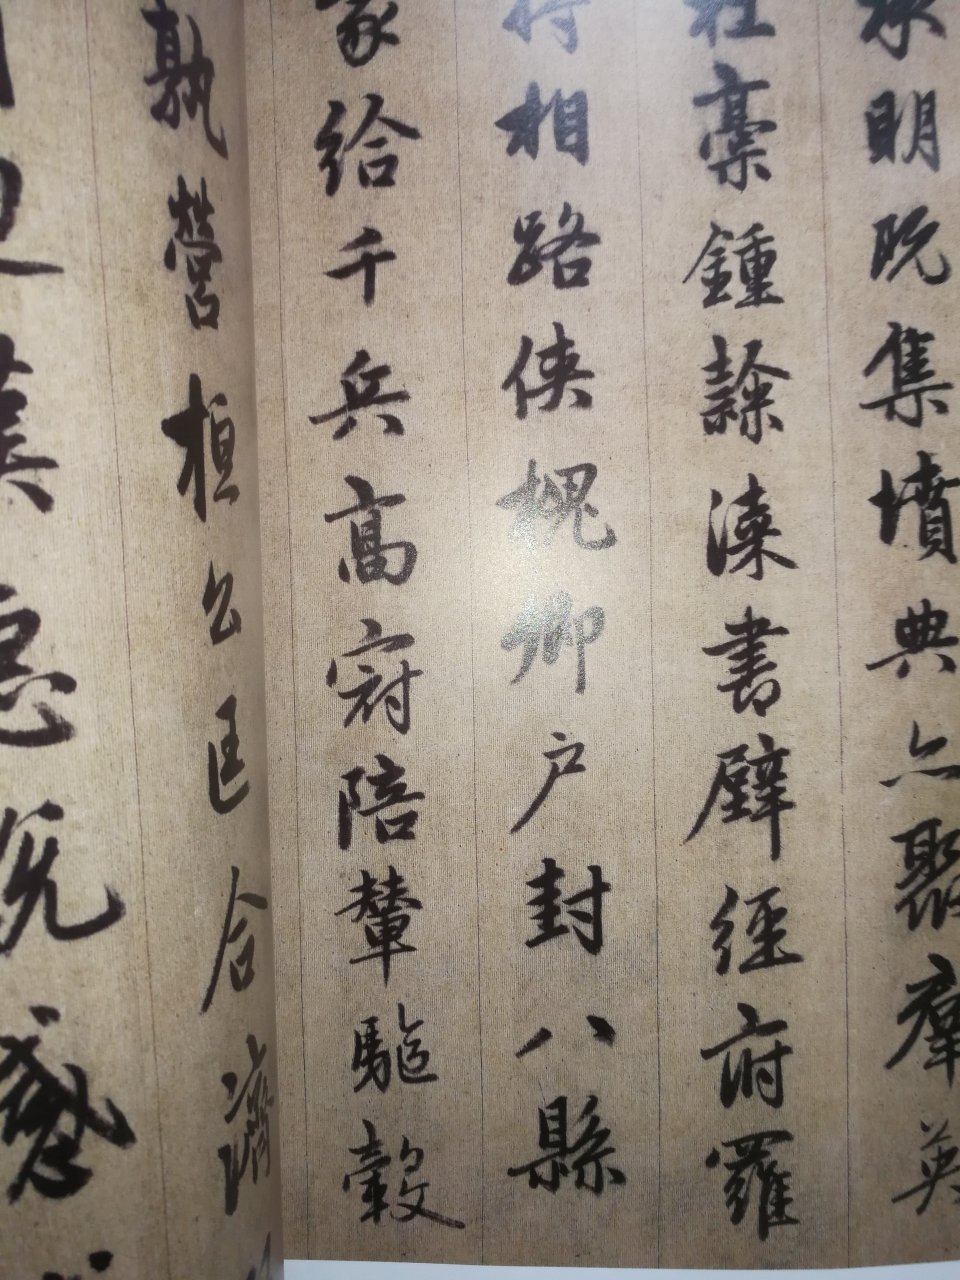 承明既集墳典亦聚羣英
杜稾鍾隸漆書壁經府羅
將相路俠槐卿戶封八縣
家給千兵高冠陪輦驅轂
孰營桓公匡合濟
迴漢惠說感